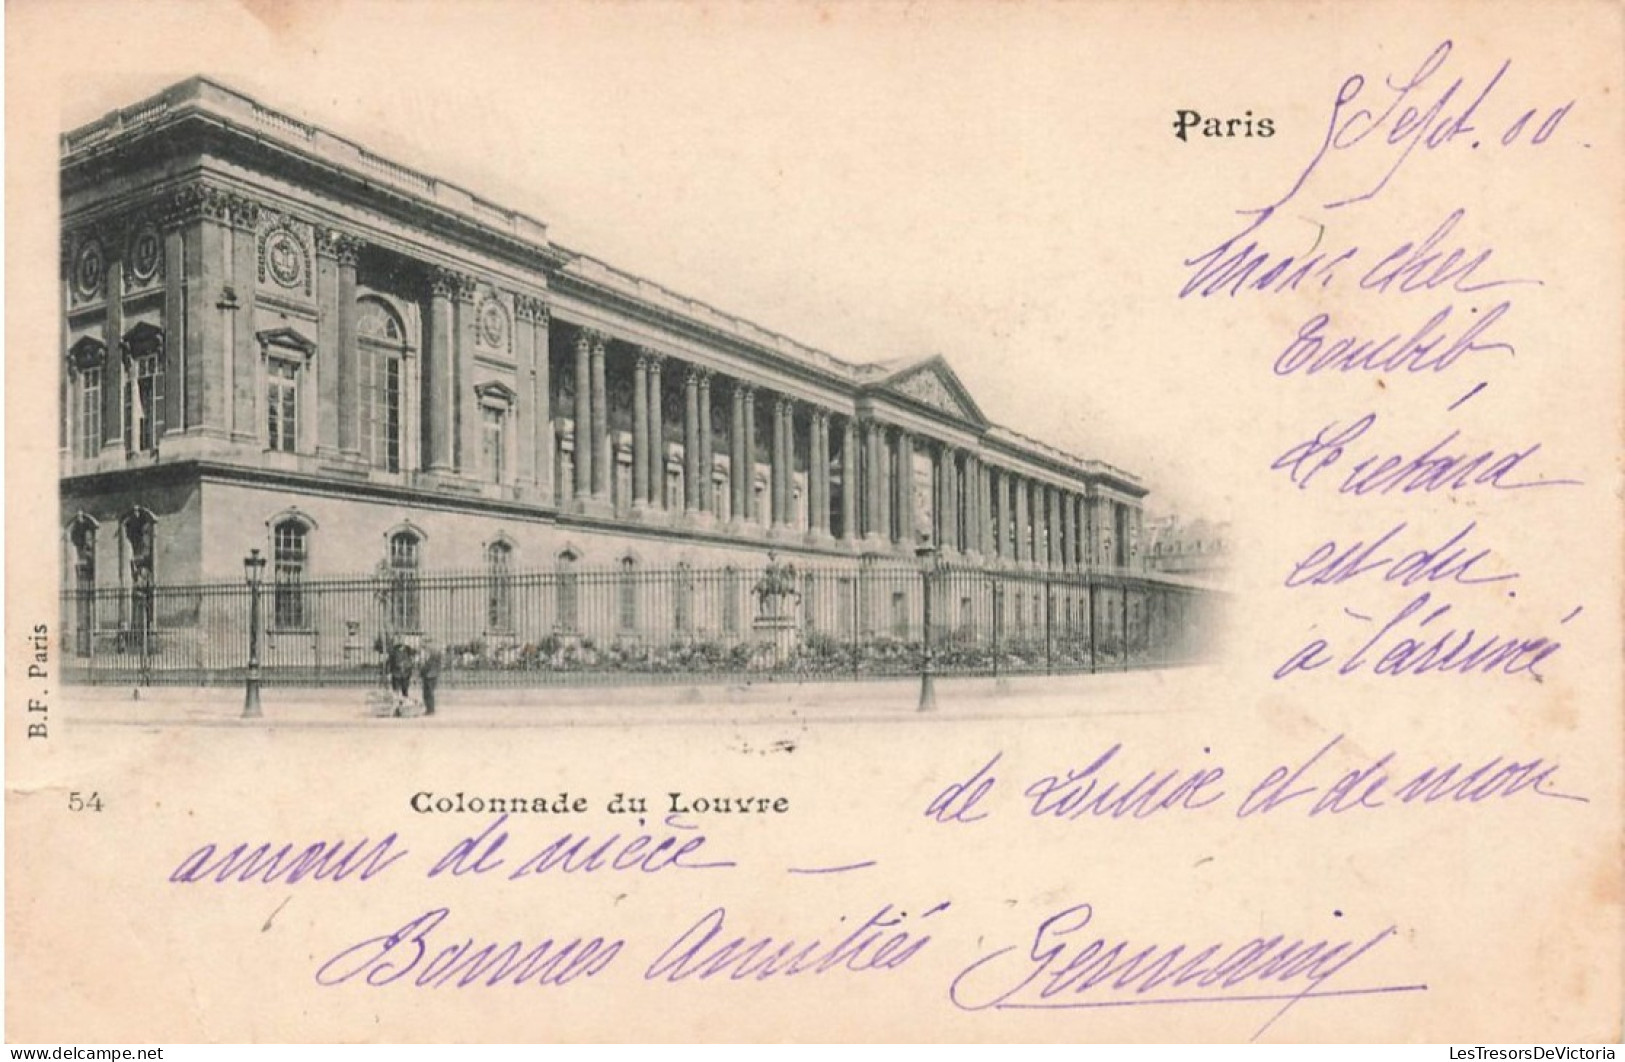 Paris 9 Sept. 00.
Mon cher
Toubib,
Le retard
est du
à l'arrivée
de Louise et de mon
amour de nièce —
Bonnes Amitiés Germany
54
Colonnade du Louvre
B.F. Paris
Delcampe.net
LesTresorsDeVictoria